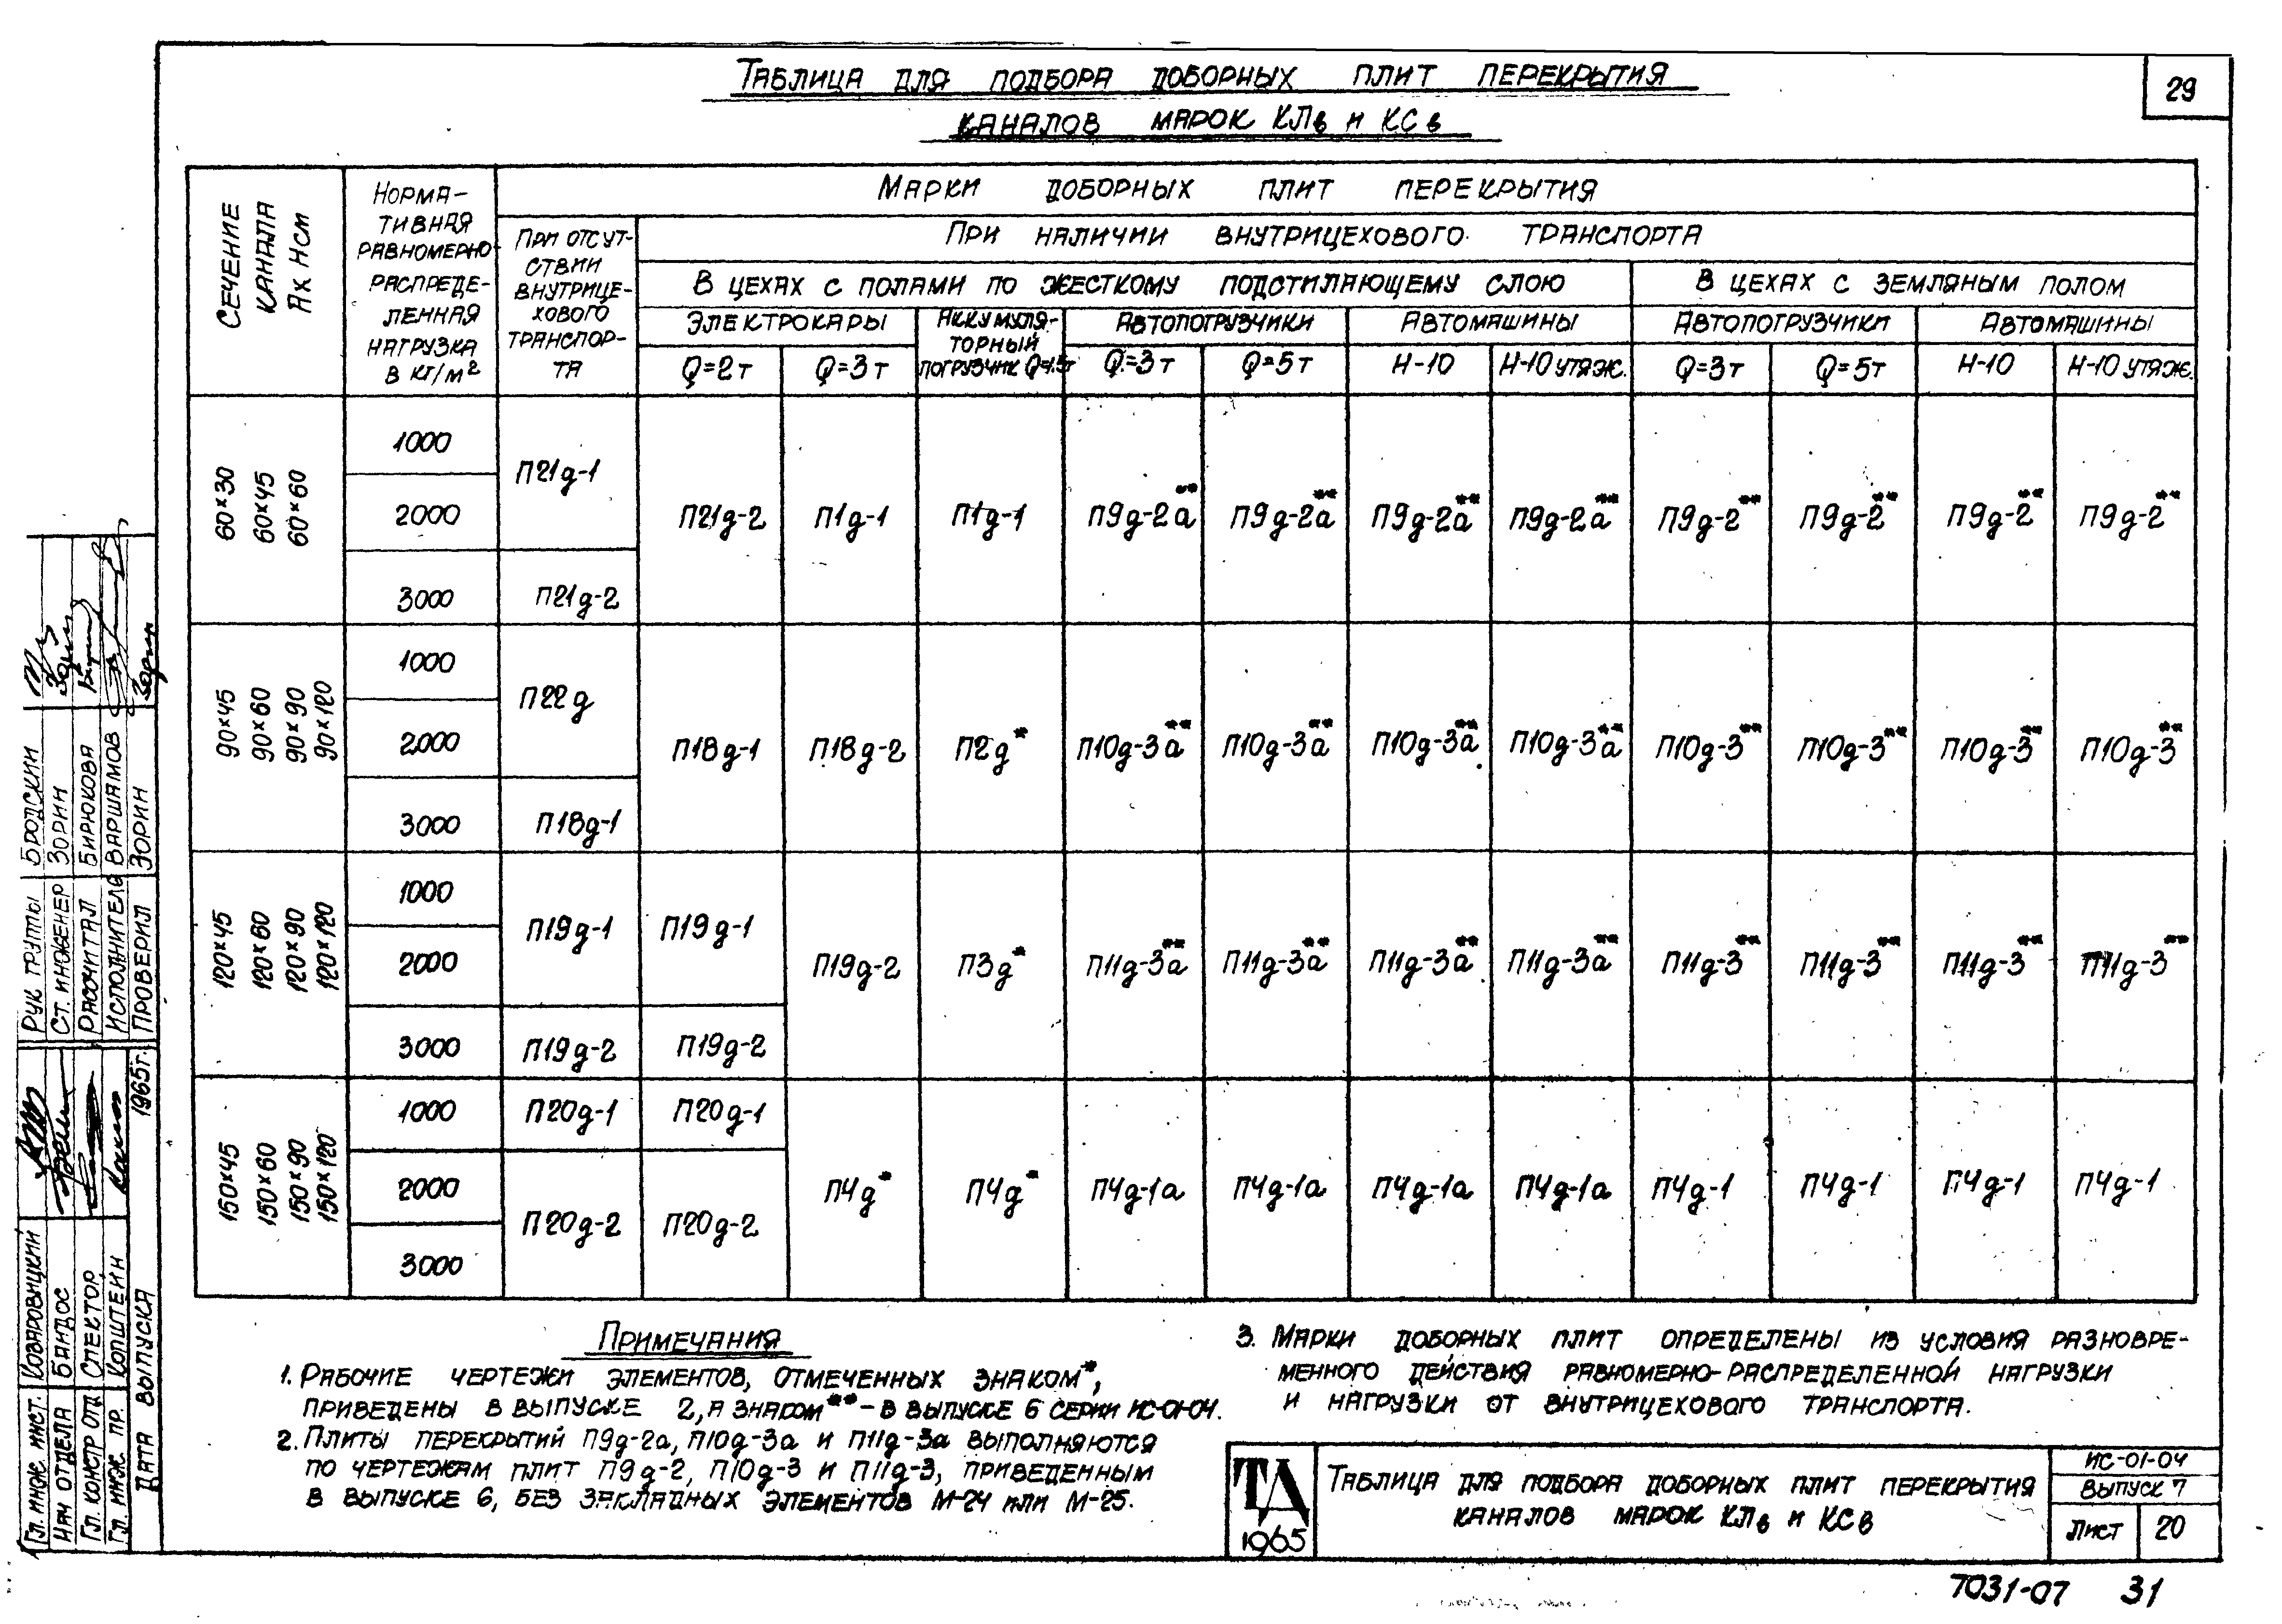 29
Таблица для подбора доборных плит перекрытия
каналов марок КЛв и КСв
Сечение
канала
А×Н см
Норма-
тивная
равномерно-
распреде-
ленная
нагрузка
в кг/м²
Марки доборных плит перекрытия
При отсут-
ствии
внутрице-
хового
транспор-
та
При наличии внутрицехового транспорта
В цехах с полами по жесткому подстилающему слою
В цехах с земляным полом
Электрокары
Аккумуля-
торный
погрузчик Q=1.5т
Автопогрузчики
Автомашины
Автопогрузчики
Автомашины
Q=2т Q=3т Q=3т Q=5т Н-10 Н-10 утяж. Q=3т Q=5т Н-10 Н-10 утяж.
60×30
60×45
60×60
1000
2000
3000
П21д-1
П21д-2
П21д-2 П1д-1 П1д-1 П9д-2а** П9д-2а** П9д-2а** П9д-2а** П9д-2** П9д-2** П9д-2** П9д-2**
90×45
90×60
90×90
90×120
1000
2000
3000
П22д
П18д-1
П18д-1 П18д-2 П2д* П10д-3а** П10д-3а** П10д-3а** П10д-3а** П10д-3** П10д-3** П10д-3** П10д-3**
120×45
120×60
120×90
120×120
1000
2000
3000
П19д-1 П19д-1
П19д-2 П19д-2
П19д-2 П3д* П11д-3а** П11д-3а** П11д-3а** П11д-3а** П11д-3** П11д-3** П11д-3** П11д-3**
150×45
150×60
150×90
150×120
1000
2000
3000
П20д-1 П20д-1
П20д-2 П20д-2
П4д* П4д* П4д-1а П4д-1а П4д-1а П4д-1а П4д-1 П4д-1 П4д-1 П4д-1
Примечания
1. Рабочие чертежи элементов, отмеченных знаком*,
приведены в выпуске 2, а знаком** - в выпуске 6 серии ИС-01-04.
2. Плиты перекрытий П9д-2а, П10д-3а и П11д-3а выполняются
по чертежам плит П9д-2, П10д-3 и П11д-3, приведенным
в выпуске 6, без закладных элементов М-24 или М-25.
3. Марки доборных плит определены из условия разновре-
менного действия равномерно-распределенной нагрузки
и нагрузки от внутрицехового транспорта.
ТА
1965
Таблица для подбора доборных плит перекрытия
каналов марок КЛв и КСв
ИС-01-04
Выпуск 7
Лист 20
7031-07 31
Рук группы Бродский
Ст. инженер Зорин
Рассчитал Бирюкова
Исполнитель Варшамов
Проверил Зорин
Гл. инж. инст. Козаровицкий
Нач отдела Бандос
Гл. констр отд Спектор
Гл. инж. пр. Копштейн
Дата выпуска 1965г.